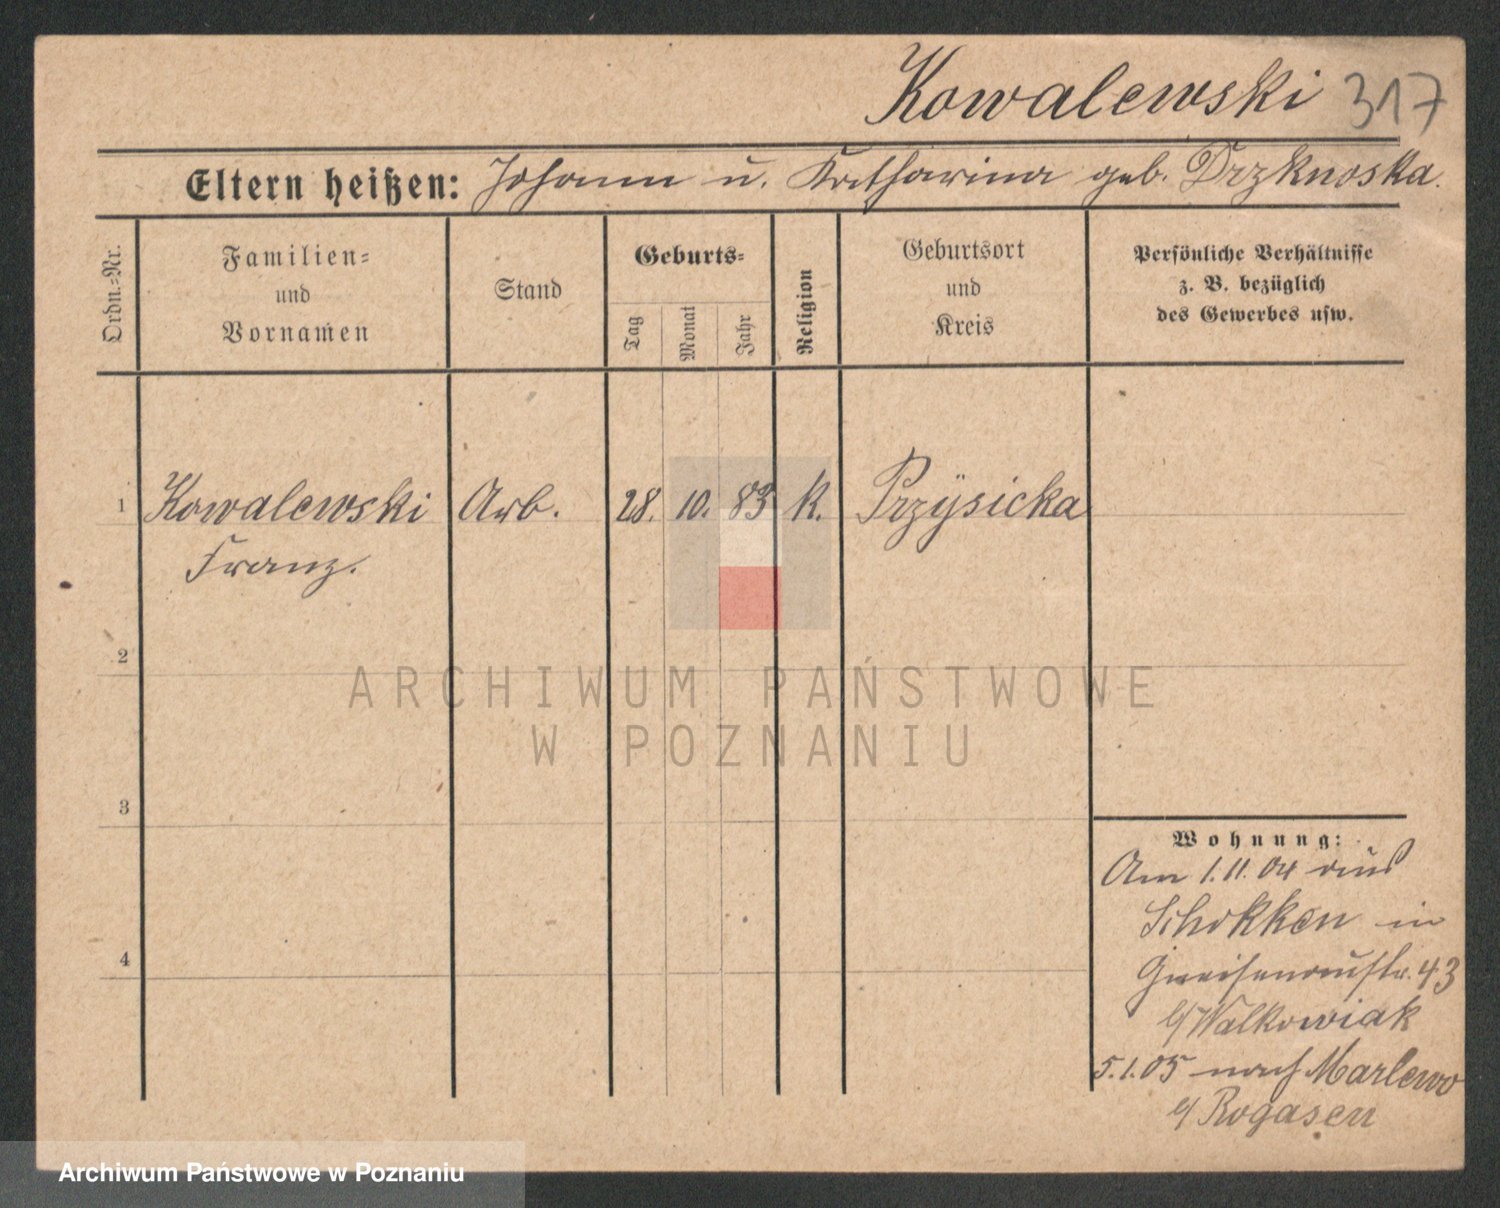 Kowalewski 317
Eltern heißen: Johann u. Katharina geb. Drzknoska.
Ordn.=Nr.
Familien=
und
Vornamen
Stand
Geburts=
Tag
Monat
Jahr
Religion
Geburtsort
und
Kreis
Persönliche Verhältnisse
z. B. bezüglich
des Gewerbes usw.
1 Kowalewski Arb. 28. 10. 83 k. Przÿsicka
Franz.
2
3
4
Wohnung:
Am 1.11.04 aus
Schokken in
Gneisenaustr. 43
b/ Walkowiak
5.1.05 nach Marlewo
b/ Rogasen
ARCHIWUM PAŃSTWOWE
W POZNANIU
Archiwum Państwowe w Poznaniu